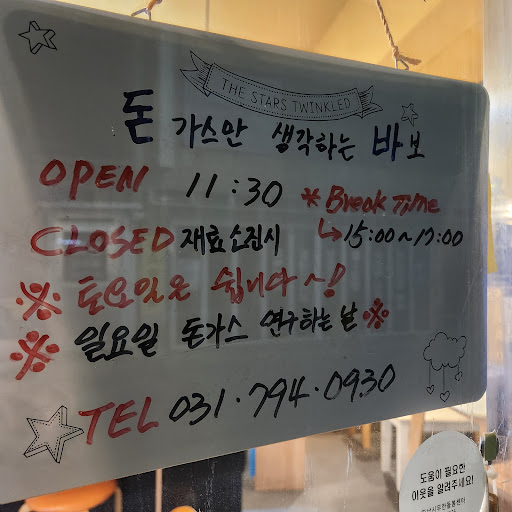 THE STARS TWINKLED
돈 가스만 생각하는 바보
OPEN 11:30
※ Break Time
CLOSED 재료소진시
↳ 15:00~17:00
※ 토요일은 쉽니다~!
※ 일요일 돈가스 연구하는 날 ※
TEL 031·794·0930
도움이 필요한
이웃을 알려주세요!